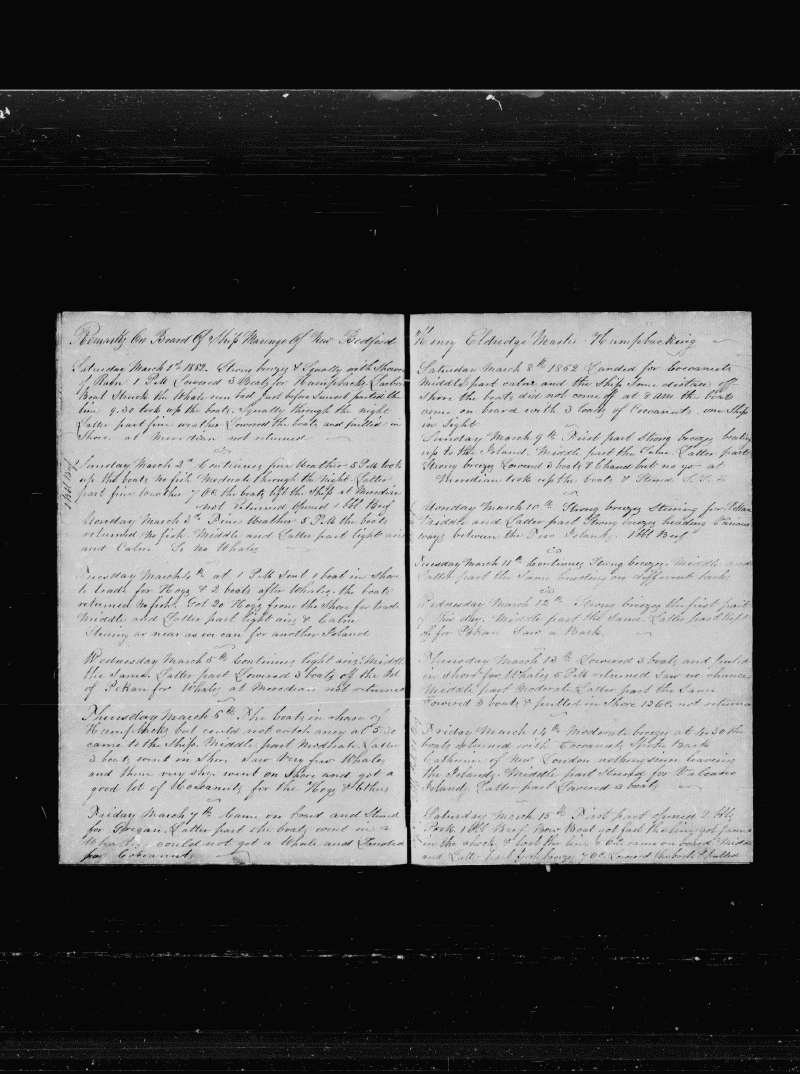 Remarks On Board Of Ship Marengo Of New Bedford
Saturday March 1st 1852. Strong breeze & Squally with Showers
of Rain 1 P.M Lowered 3 Boats for Humpbacks Larboard
Boat Struck the Whale run bad Just before Sunset parted the
line 9.30 took up the boats. Squally through the night
Latter part fine weather Lowered the boats and pulled in
Shore at Meredian not returned
Sunday March 2nd Continues fine Weather 5 P.M took
up the boats no fish Moderate through the Night. Latter
part fine Weather 7 Oc the boats left the Ship at Meredian
not returned Opened 1 bbl Beef
1 bbl Beef
Monday March 3d Fine Weather 5 P.M the boats
returned No fish. Middle and Latter part light airs
and Calm. So No Whales
Tuesday March 4th at 1 P.M Sent 1 boat in Shore
to trade for Hogs & 2 boats after Whales. the boats
returned No fish. Got 20 Hogs from the Shore for trade
Middle and Latter part light airs & Calm
Steering as near as we can for another Island
Wednesday March 5th Continues light airs. Middle
the Same. Latter part Lowered 3 boats off the
of Pikan for Whales at Meredian not returned
Thursday March 6th The boats in chase of
Humpbacks but could not catch any at 5.30
came to the Ship. Middle part Moderate. Latter
3 boats went in Shore Saw Very few Whales
and them very shy. went on Shore and got a
good lot of Cocoanuts for the Hogs & Others
Friday March 7th Came on board and Steered
for Grigan. Latter part the boats went in
could not get a Whale and Landed
for Cocoanuts
Henry Eldredge Master Humpbacking
Saturday March 8th 1852 Landed for Cocoanuts
Middle part calm and the Ship Some distance off
Shore the boats did not come off at 9 am the boats
came on board with 3 loads of Cocoanuts. one Ship
in Sight
Sunday March 9th First part Strong breezes beating
up to the Island. Middle part the Same. Latter part
Strong breezes Lowered 3 boats & Chased but no go at
Meredian took up the boats & Steered
Monday March 10th Strong breezes Steering for Pikan
Middle and Latter part Strong breezes heading Various
ways between the Two Islands. 1 bbl Beef
Tuesday March 11th Continues Strong breezes. Middle and
Latter part the Same heading on different tacks
Wednesday March 12th Strong breezes the first part
of this day. Middle part the Same. Latter part kept
off for Pikan Saw a Bark.
Thursday March 13th Lowered 3 boats and pulled
in shore for Whales 6 P.M returned Saw no chance
Middle part Moderate Latter part the Same
Lowered 3 boats & pulled in Shore 12 Oc. not returned
Friday March 14th Moderate breezes at 4.30 the
boats returned with Cocoanuts, Spoke Bark
Catherine of New London nothing since leaving
the Islands. Middle part Steered for Volcano
Island. Latter part Lowered 2 boats
Saturday March 15th First part opened 2 bbls
Pork 1 bbl Beef. Bow Boat got fast the line got
in the chock & parted the line 6 Oc. came on board. Middle
and Latter part fresh breezes 7 Oc. Lowered the boats & pulled